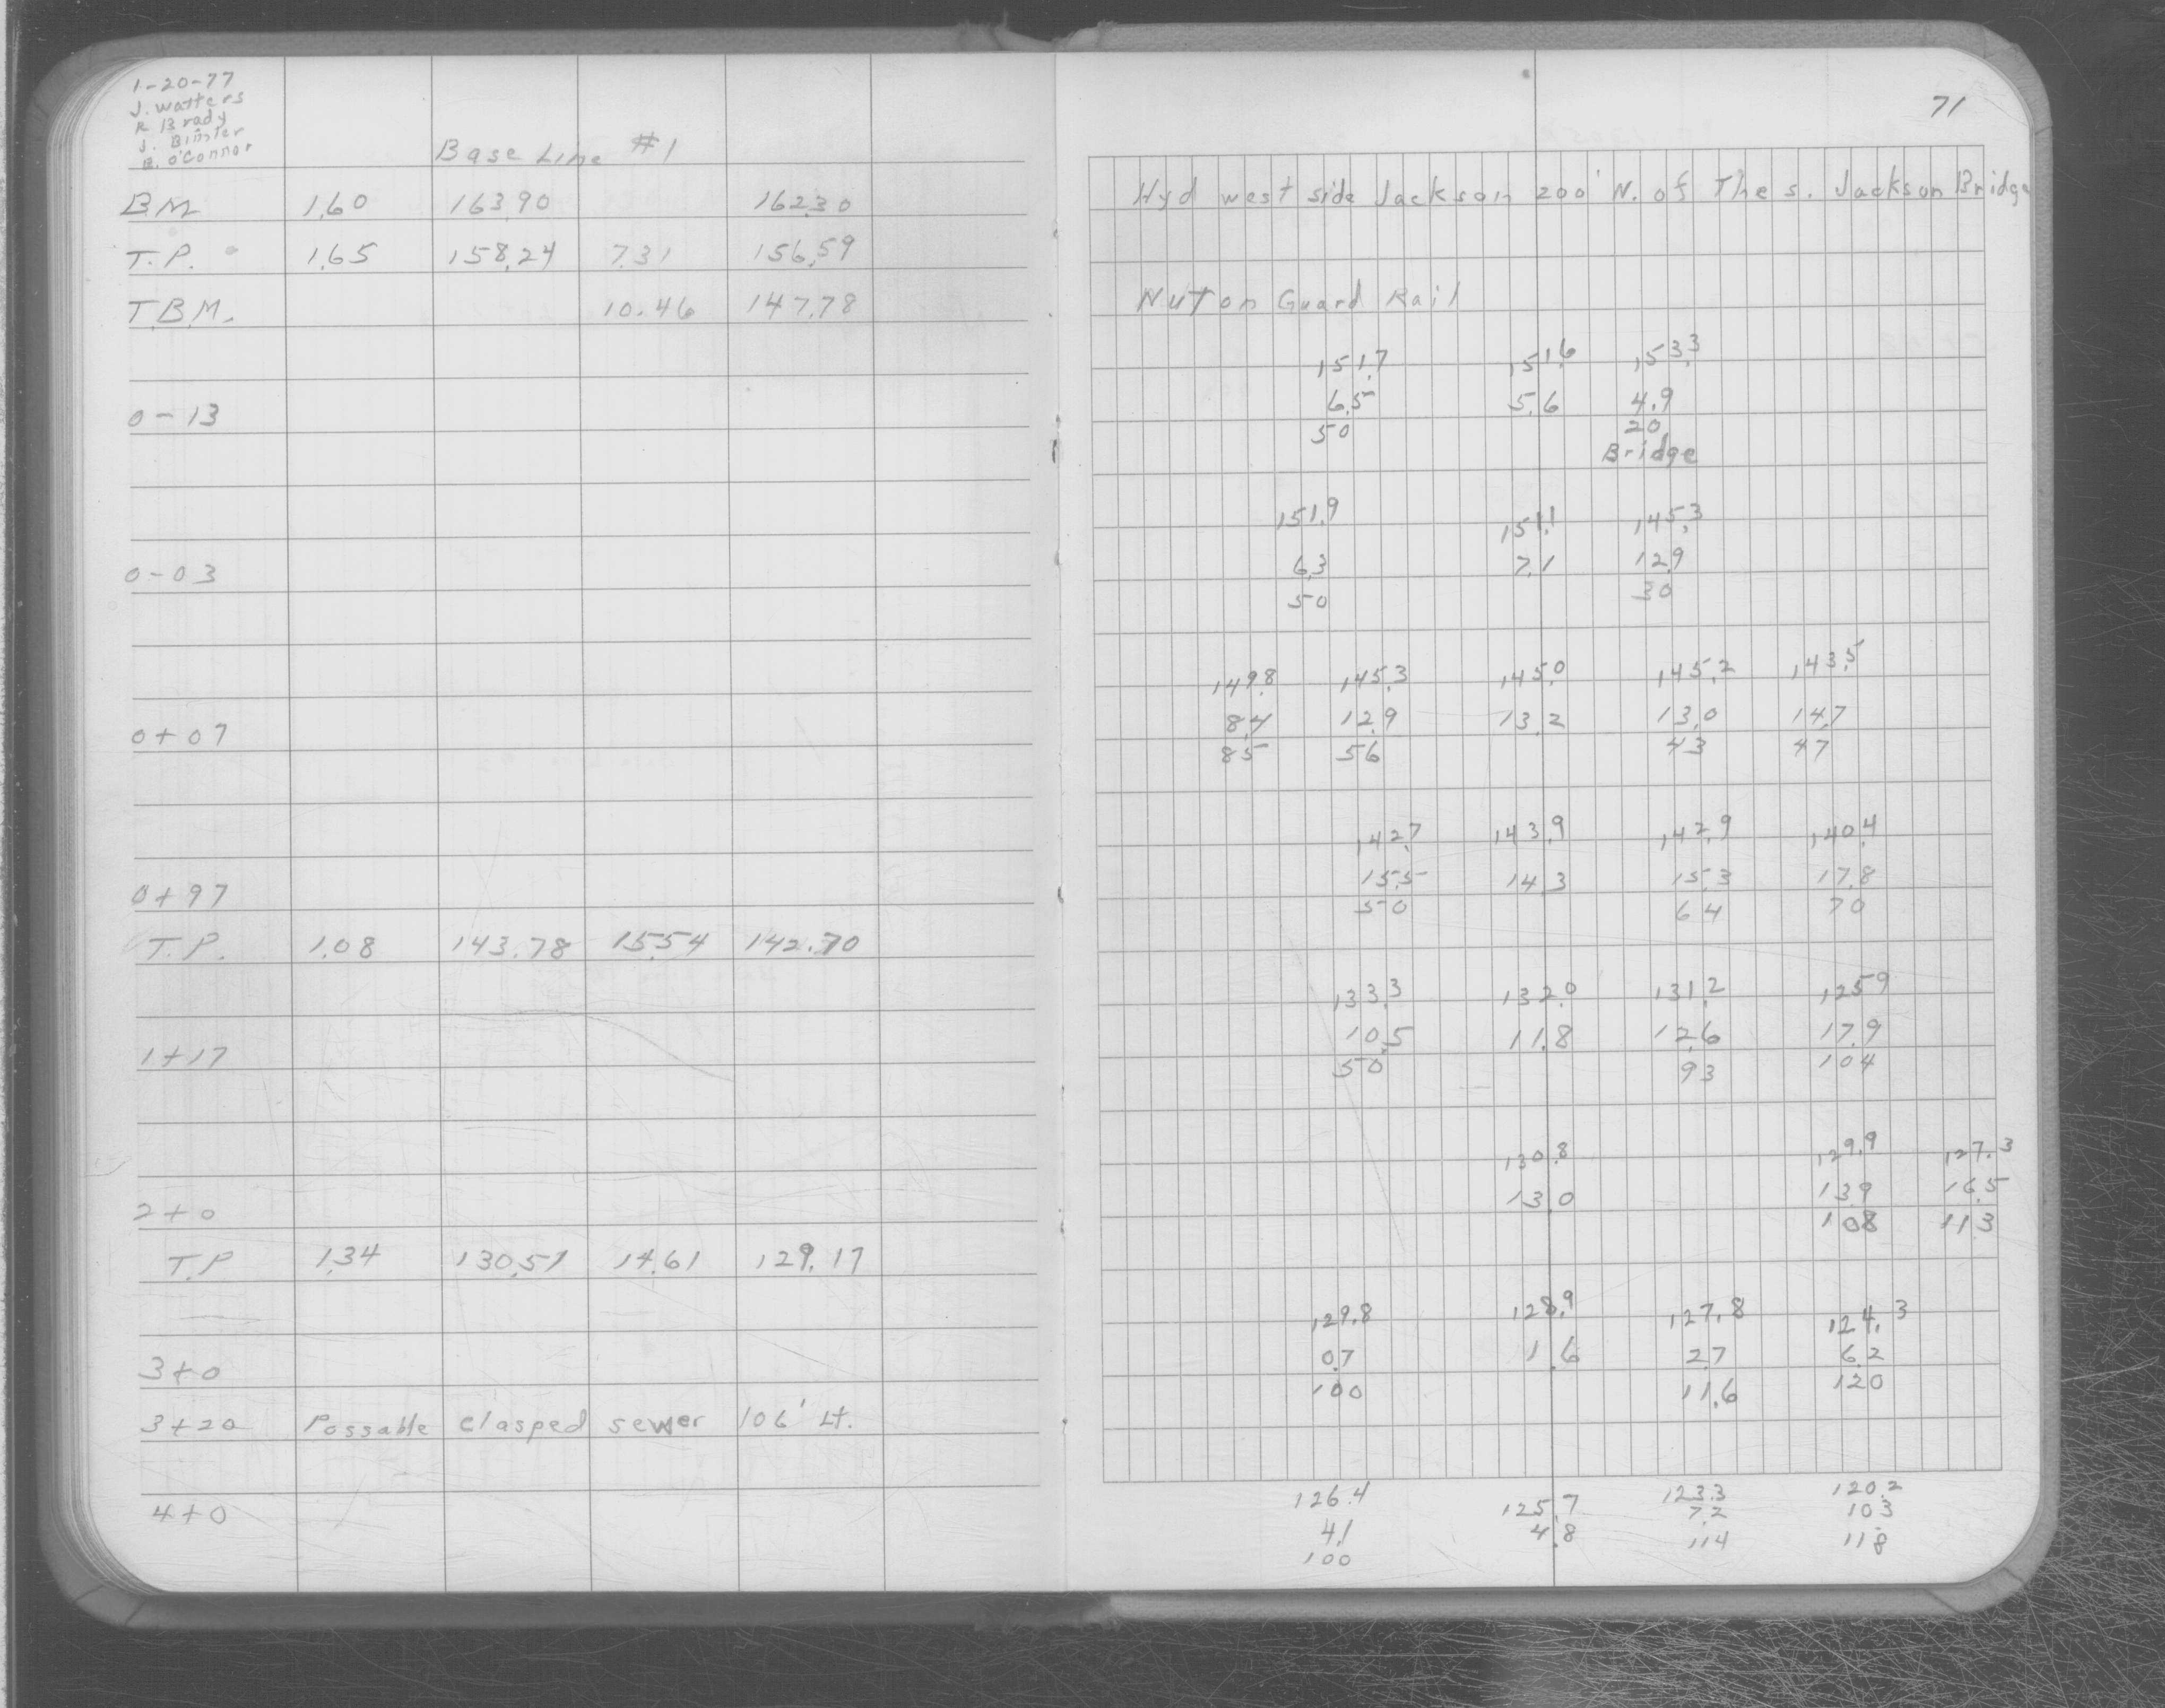 1-20-77
J. Watters
R Brady
J.
B. O'Connor
Base Line #1
B.M. 1.60 163.90 162.30
T.P. 1.65 158.24 7.31 156.59
T.B.M. 10.46 147.78
0-13
0-03
0+07
0+97
T.P. 1.08 143.78 15.54 142.70
1+17
2+0
T.P 1.34 130.51 14.61 129.17
3+0
3+20 Possable clasped sewer 106' Lt.
4+0
71
Hyd west side Jackson 200' N. of The S. Jackson Bridge
Nut on Guard Rail
151.7 151.6 153.3
6.5 5.6 4.9
50 20
Bridge
151.9 151.1 145.3
6.3 7.1 12.9
50 30
149.8 145.3 145.0 145.2 143.5
8.4 12.9 13.2 13.0 14.7
85 56 43 47
142.7 143.9 142.9 140.4
15.5 14.3 15.3 17.8
50 64 70
133.3 132.0 131.2 125.9
10.5 11.8 12.6 17.9
50 93 104
130.8 129.9 127.3
13.0 13.9 16.5
108 113
129.8 128.9 127.8 124.3
0.7 1.6 2.7 6.2
100 11.6 120
126.4 125.7 123.3 120.2
4.1 4.8 7.2 10.3
100 114 118